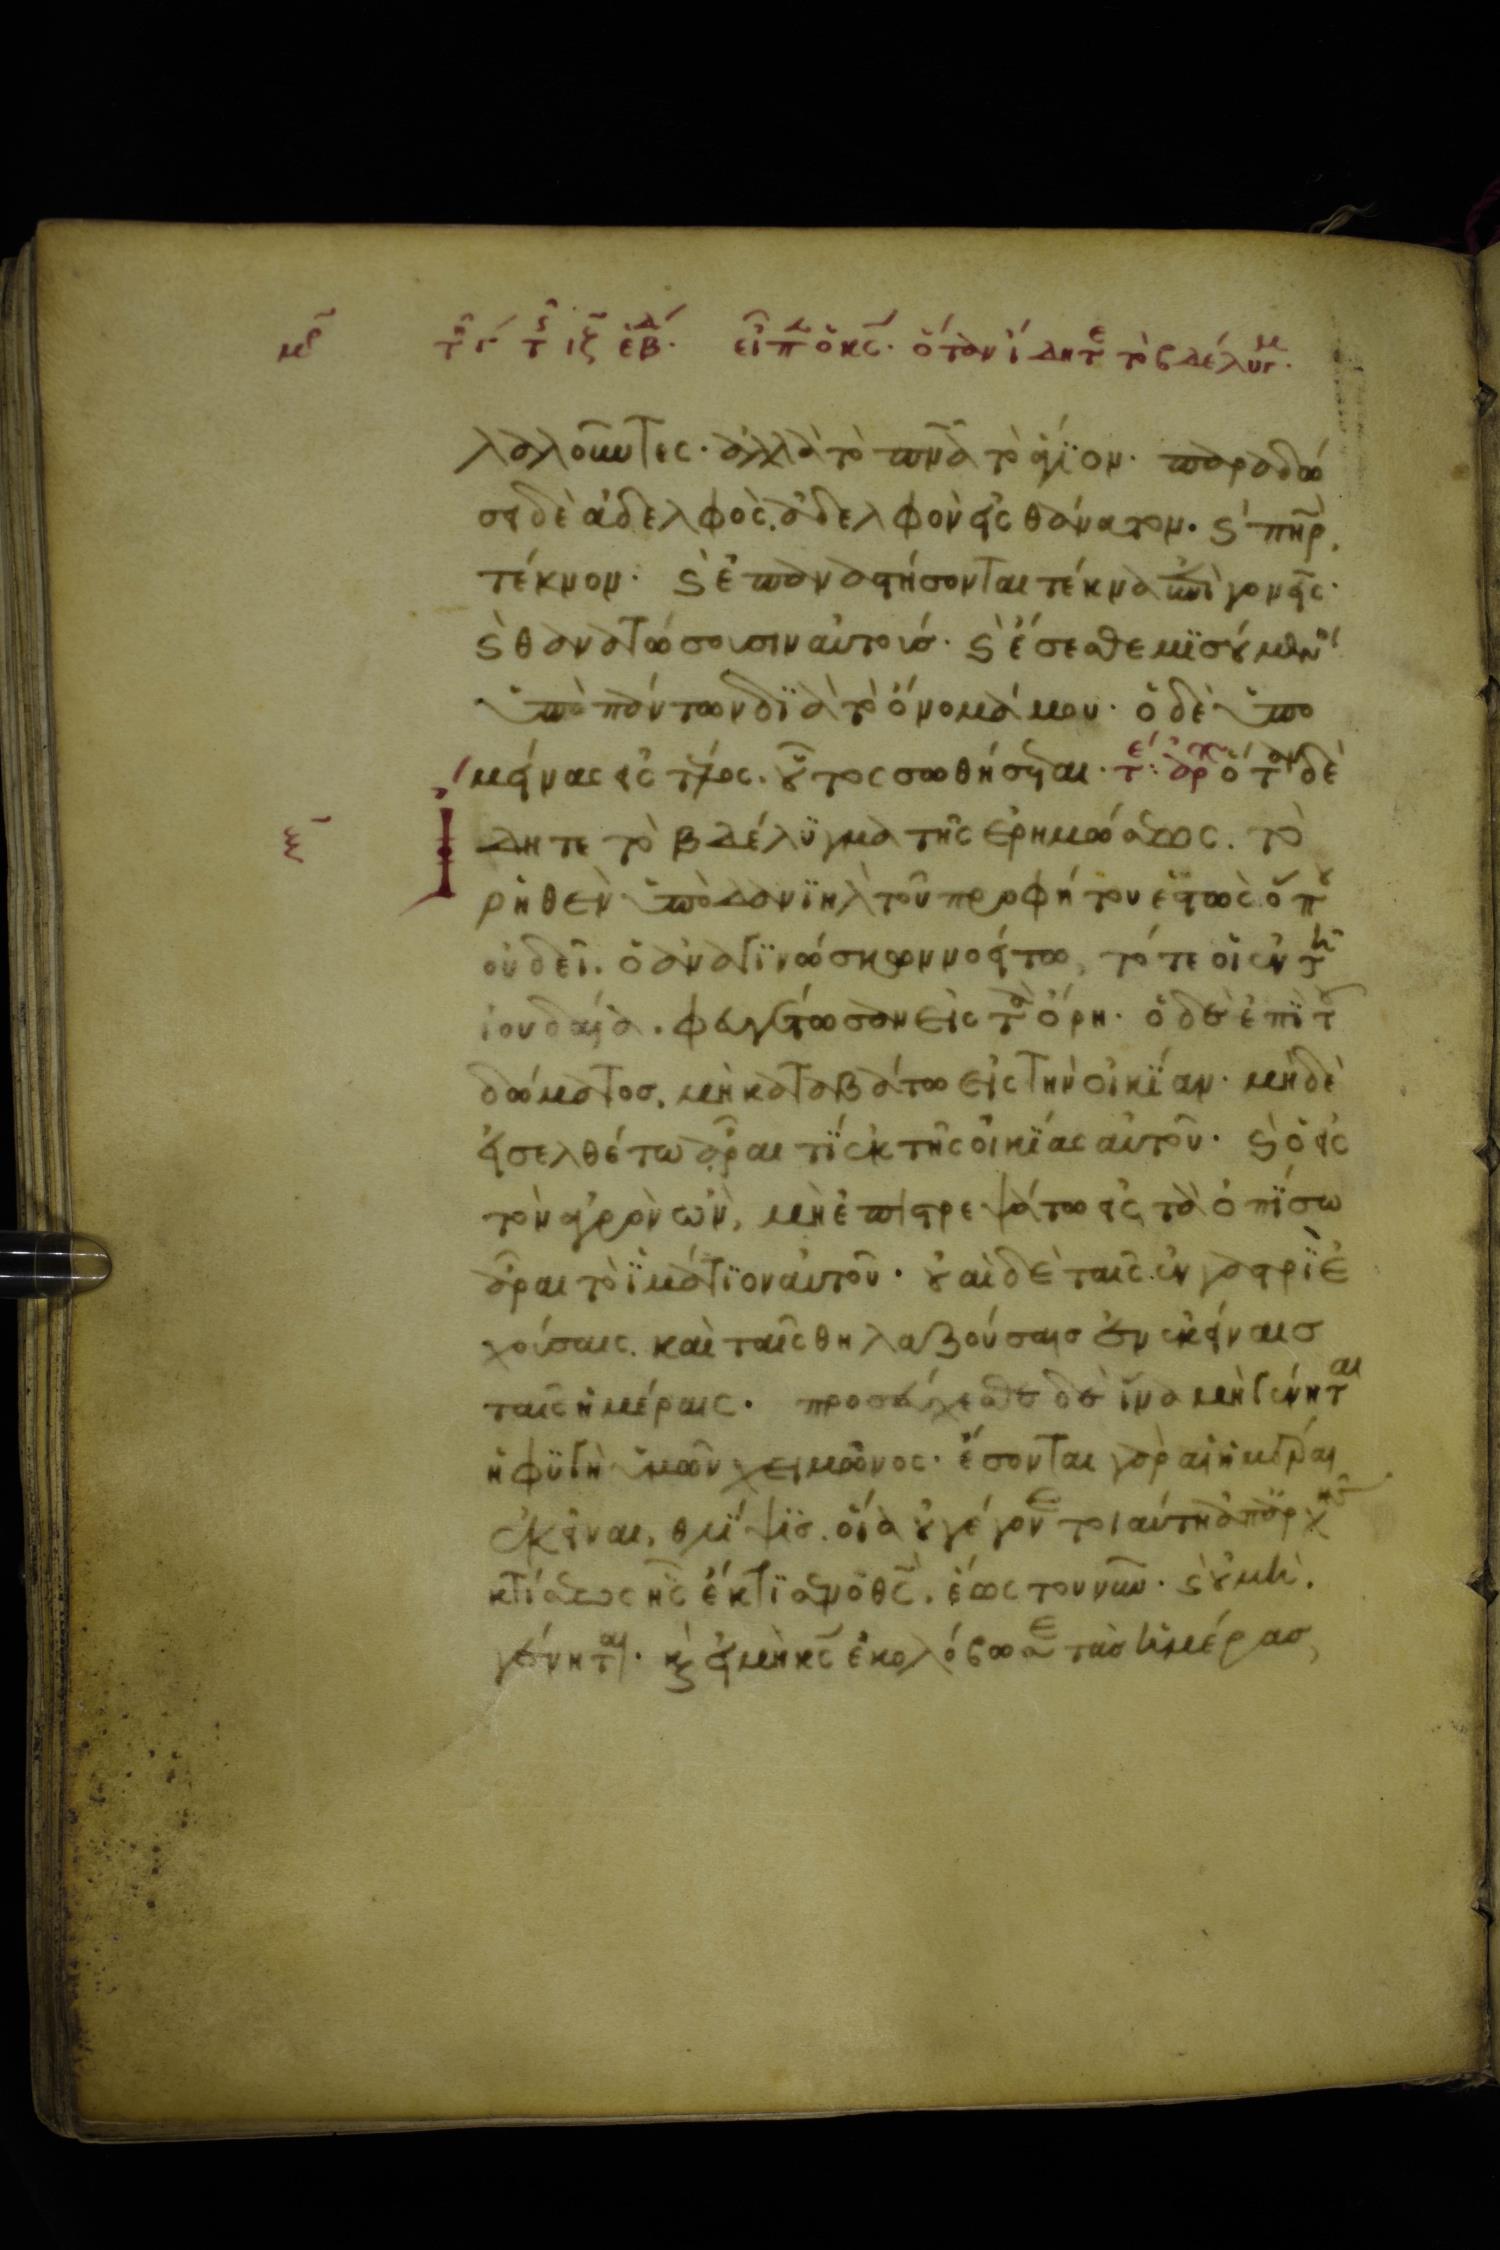 μδ τῇ γ τῆς ιζ ἑβδ. εἶπεν ὁ κς· ὅταν ἴδητε τὸ βδέλυγμ.
λαλοῦντες· ἀλλὰ τὸ πνᾶ τὸ ἅγιον· παραδώ
σει δὲ ἀδελφὸς, ἀδελφὸν εἰς θάνατον· ϛ πηρ,
τέκνον· ϛ ἐπαναστήσονται τέκνα ἐπὶ γονεῖς·
ϛ θανατώσουσιν αὐτούσ· ϛ ἔσεσθε μϊσούμενοι
ὑπὸ πάντων δϊὰ τὸ ὄνομά μου· ὁ δὲ ὑπο
μείνας εἰς τέλος. οὗτος σωθήσεται· τέ ἀρχ ὅταν δὲ
ξ Ἴδητε τὸ βδέλϋγμα τῆς ἐρημώσεως. τὸ
ρηθὲν ὑπὸ δανϊὴλ τοῦ προφήτου ἑστὼς ὅπου
οὐ δεῖ. ὁ ἀναγϊνώσκων νοείτω, τότε οἱ ἐν τῇ
ἰουδαία. φευγέτωσαν εἰς τὰ ὄρη· ὁ δὲ ἐπὶ τοῦ
δώματοσ, μὴ καταβάτω εἰς τὴν οἰκΐαν· μηδὲ
εἰσελθέτω ἆραι τΐ ἐκ τῆς οἰκΐας αὐτοῦ· ϛ ὁ εἰς
τὸν ἀγρὸν ὢν, μὴ ἐπιστρεψάτω εἰς τὰ ὀπΐσω
ἆραι τὸ ἱμάτϊον αὐτοῦ· οὐαὶ δὲ ταῖς ἐν γαστρὶ ἐ
χούσαις. καὶ ταῖς θηλαζούσαισ ἐν ἐκείναισ
ταῖς ἡμέραις· προσεύχεσθε δὲ ἵνα μὴ γένηται
ἡ φϋγὴ ὑμῶν χειμῶνος· ἔσονται γὰρ αἱ ἡμέραι
ἐκεῖναι, θλίψϊσ. οἵα οὐ γέγονε τοιαύτη ἀπαρχῆς
κτίσεως ἧς ἔκτϊσεν ὁ θς, ἕως του νῦν· ϛ οὐ μὴ.
γένηται· κ εἰ μὴ κς ἐκολόβωσε τὰσ ἡμέρασ,